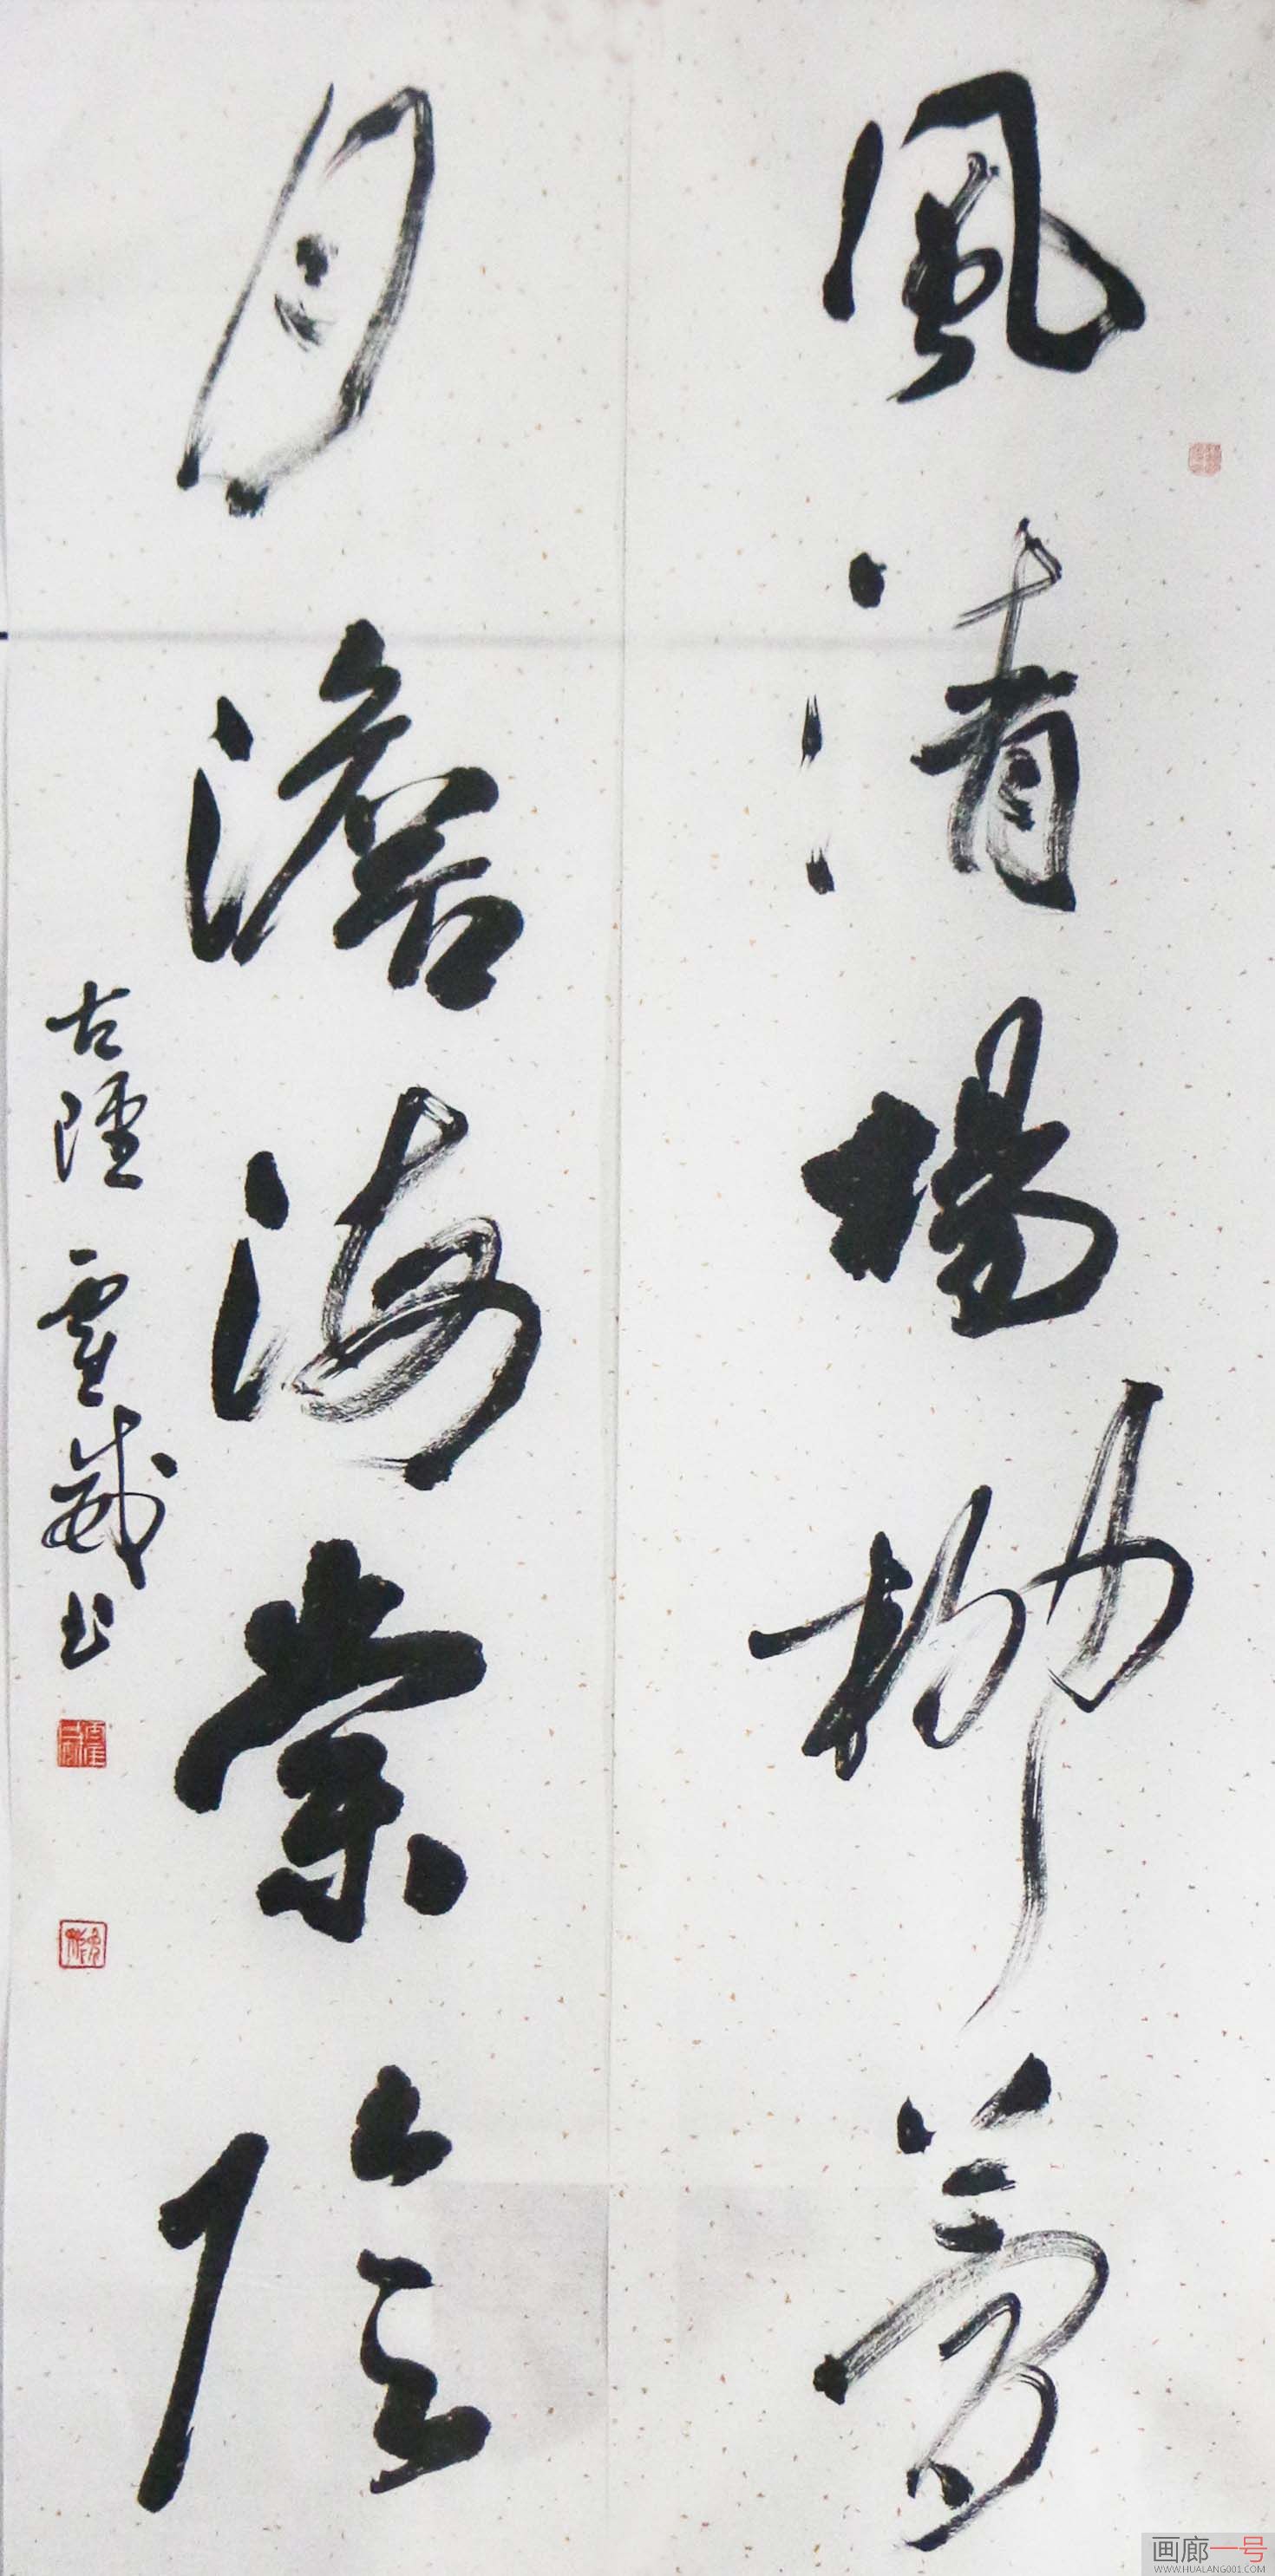 風清楊柳夢
月澹海棠陰
古陘霍威书
画廊一号
WWW.HUALANG001.COM